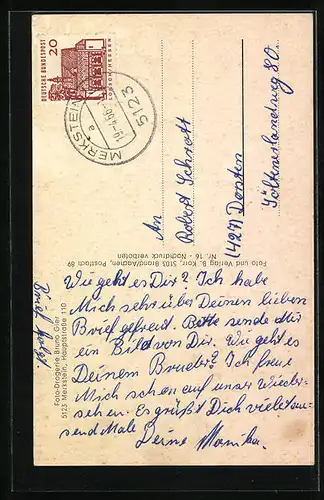 DEUTSCHE BUNDESPOST
20
LORSCH/HESSEN
MERKSTEIN
5123
a
An
Robert Schrott
(427) Dorsten
80
Foto und Verlag B. Korr, 5103 Brand/Aachen, Postfach 89
Nr. 16 - Nachdruck verboten
Foto-Drogerie Bruno Gier
5123 Merkstein, Hauptstraße 110
Wie geht es Dir? Ich habe
Mich sehr über Deinen lieben
Brief gefreut. Bitte sende mir
ein Bild von Dir. Wie geht es
Deinem Bruder? Ich freue
Mich schon auf unser Wieder-
sehen. Es grüßt Dich vieltau-
send Male
Deine Monika.